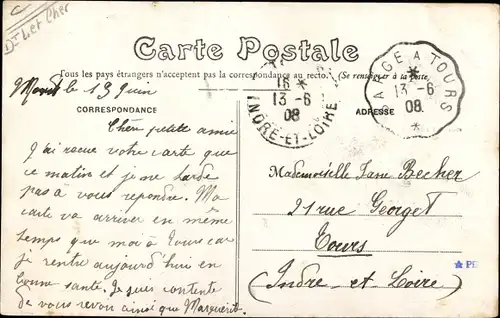 Dt L et Cher
Carte Postale
Tous les pays étrangers n'acceptent pas la correspondance au recto. (Se renseigner à la poste)
le 13 Juin
CORRESPONDANCE
ADRESSE
16 *
13 -6
08
INDRE-ET-LOIRE
A TOURS
*
13 -6
08
*
Cher petite amie
J'ai recue votre carte que
ce matin et je ne tarde
pas à vous repondre. Ma
carte va arriver en même
temps que moi à Tours car
je rentre aujourd'hui en
bonne santé. Je suis contente
de vous revoir ainsi que Marguerite.
Mademoiselle Jane Becher
21 rue Georget
Tours
(Indre et Loire)